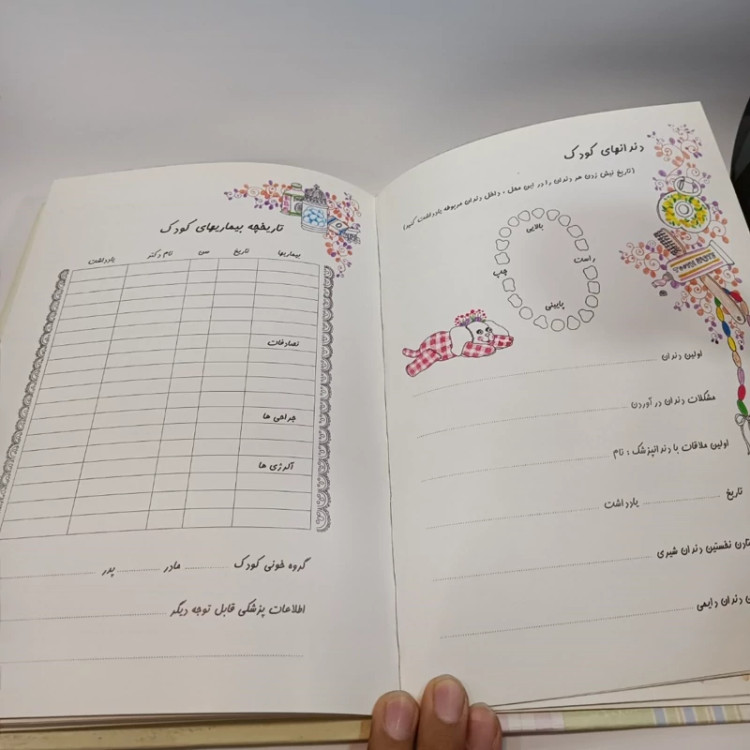 دندانهای کودک
(تاریخ نیش زدن هر دندان را در این محل، داخل دندان مربوطه یادداشت کنید)
بالایی
راست
چپ
پایینی
اولین دندان
مشکلات دندان در آوردن
اولین ملاقات با دندانپزشک : نام
تاریخ یادداشت
نخستین دندان شیری
دندان دایمی
تاریخچه بیماریهای کودک
بیماریها تاریخ سن نام دکتر یادداشت
تصادفات
جراحی ها
آلرژی ها
گروه خونی کودک مادر پدر
اطلاعات پزشکی قابل توجه دیگر